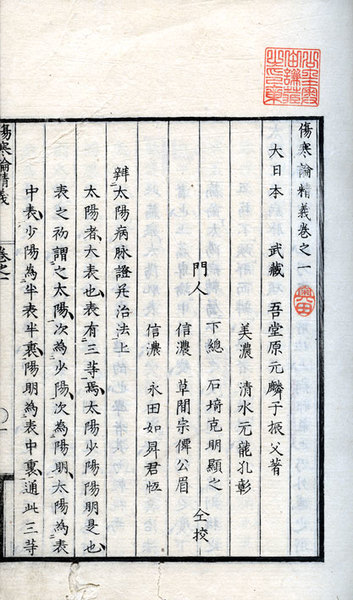 傷寒論精義卷之一
大日本 武藏 吾堂原元麟子振父著
美濃 清水元龍孔彰
下總 石埼克明顯之
門人 仝校
信濃 草間宗儒公眉
信濃 永田如昇君恆
辨太陽病脉證幷治法上
太陽者、大表也、表有三等焉、太陽少陽陽明是也、
表之初謂之太陽、次為少陽、次為陽明、太陽為表
中表、少陽為半表半裏、陽明為表中裏、通此三等
傷寒論精義 卷之一